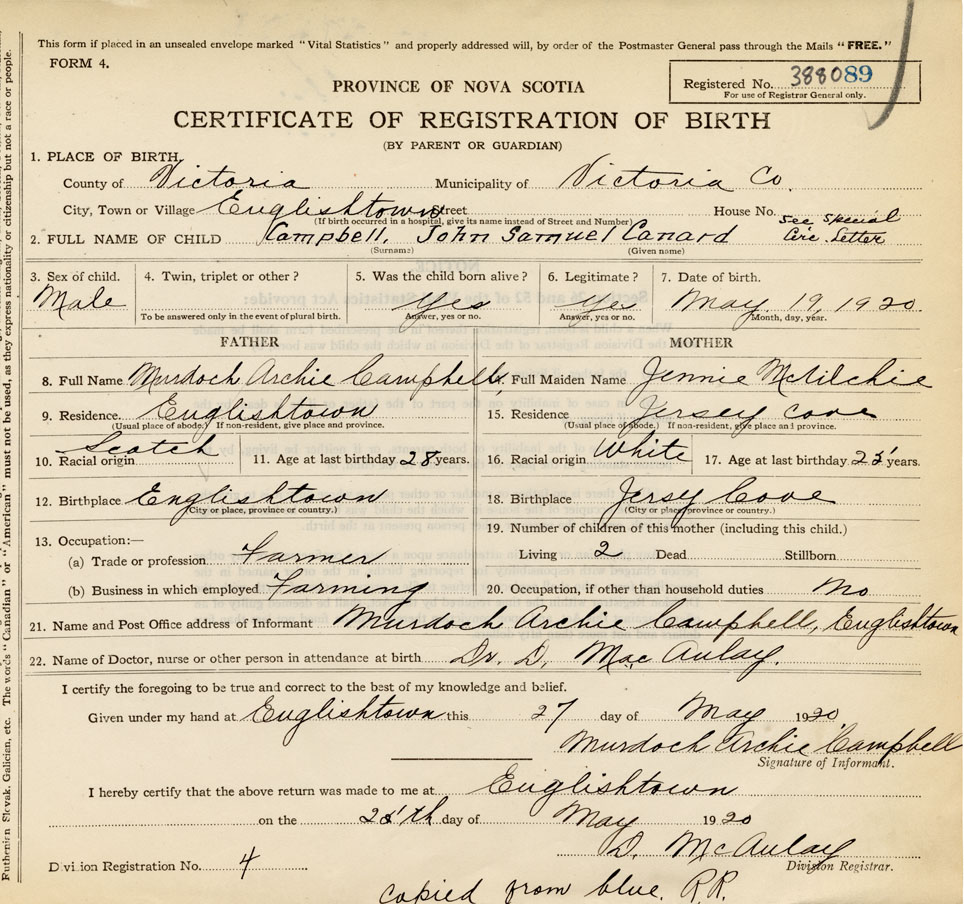 This form if placed in an unsealed envelope marked "Vital Statistics" and properly addressed will, by order of the Postmaster General pass through the Mails "FREE."
FORM 4.
Registered No. 388089
For use of Registrar General only.
PROVINCE OF NOVA SCOTIA
CERTIFICATE OF REGISTRATION OF BIRTH
(BY PARENT OR GUARDIAN)
1. PLACE OF BIRTH.
County of Victoria Municipality of Victoria Co.
City, Town or Village Englishtown Street House No.
(If birth occurred in a hospital, give its name instead of Street and Number)
see special
Circ. Letter
2. FULL NAME OF CHILD Campbell, John Samuel Canard
(Surname) (Given name)
3. Sex of child. 4. Twin, triplet or other? 5. Was the child born alive? 6. Legitimate? 7. Date of birth.
Male Yes Yes May 19, 1920.
To be answered only in the event of plural birth. Answer, yes or no. Answer, yes or no. Month, day, year.
FATHER MOTHER
8. Full Name Murdoch Archie Campbell Full Maiden Name Jennie McRitchie
9. Residence Englishtown 15. Residence Jersey Cove
(Usual place of abode.) If non-resident, give place and province. (Usual place of abode.) If non-resident, give place and province.
10. Racial origin Scotch 11. Age at last birthday 28 years. 16. Racial origin White 17. Age at last birthday 25 years.
12. Birthplace Englishtown 18. Birthplace Jersy Cove
(City or place, province or country.) (City or place, province or country.)
13. Occupation:— 19. Number of children of this mother (including this child.)
(a) Trade or profession Farmer Living 2 Dead Stillborn
(b) Business in which employed Farming 20. Occupation, if other than household duties No
21. Name and Post Office address of Informant Murdoch Archie Campbell, Englishtown
22. Name of Doctor, nurse or other person in attendance at birth Dr. D. MacAulay.
I certify the foregoing to be true and correct to the best of my knowledge and belief.
Given under my hand at Englishtown this 27 day of May 1920.
Murdoch Archie Campbell
Signature of Informant.
I hereby certify that the above return was made to me at Englishtown
on the 28th day of May 1920
D. McAulay
Division Registrar.
Division Registration No. 4
copied from blue. R.R.
Slovak, Galician, etc. The words "Canadian" or "American" must not be used, as they express nationality or citizenship but not a race or people.